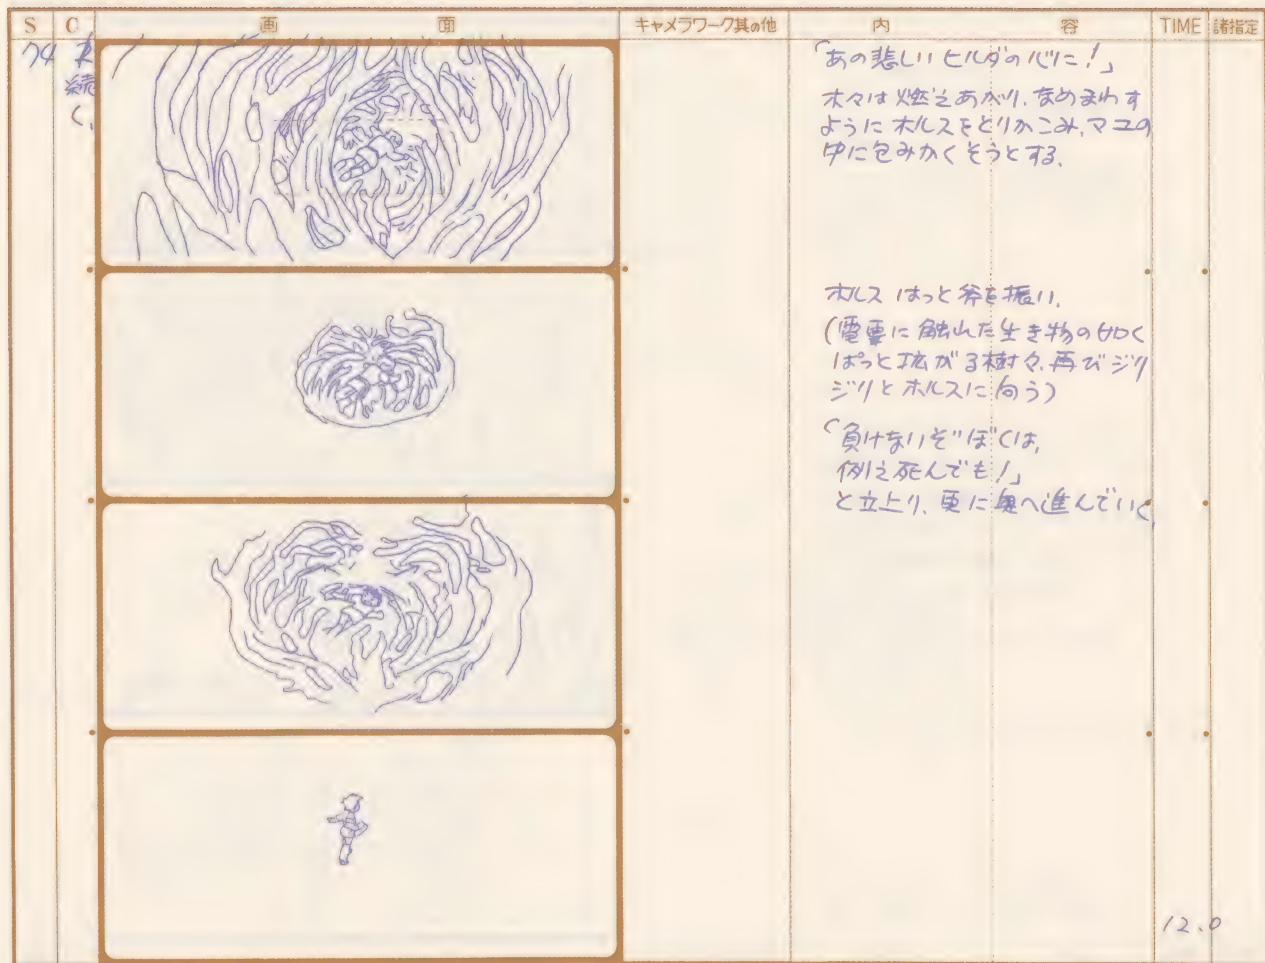 S C 画面 キャメラワーク其の他 内容 TIME 諸指定
74
続
く、
「あの悲しいヒルダの心に!」
木々は燃えあがり、なめまわす
ようにホルスをとりかこみ、マユの
中に包みかくそうとする。
ホルス はっと斧を振い、
(電電に触れた生き物の如く
ぱっと拡がる樹々、再びジリ
ジリとホルスに向う)
「負けないぞぼくは、
例え死んでも!」
と立上り、更に奥へ進んでいく、
12.0